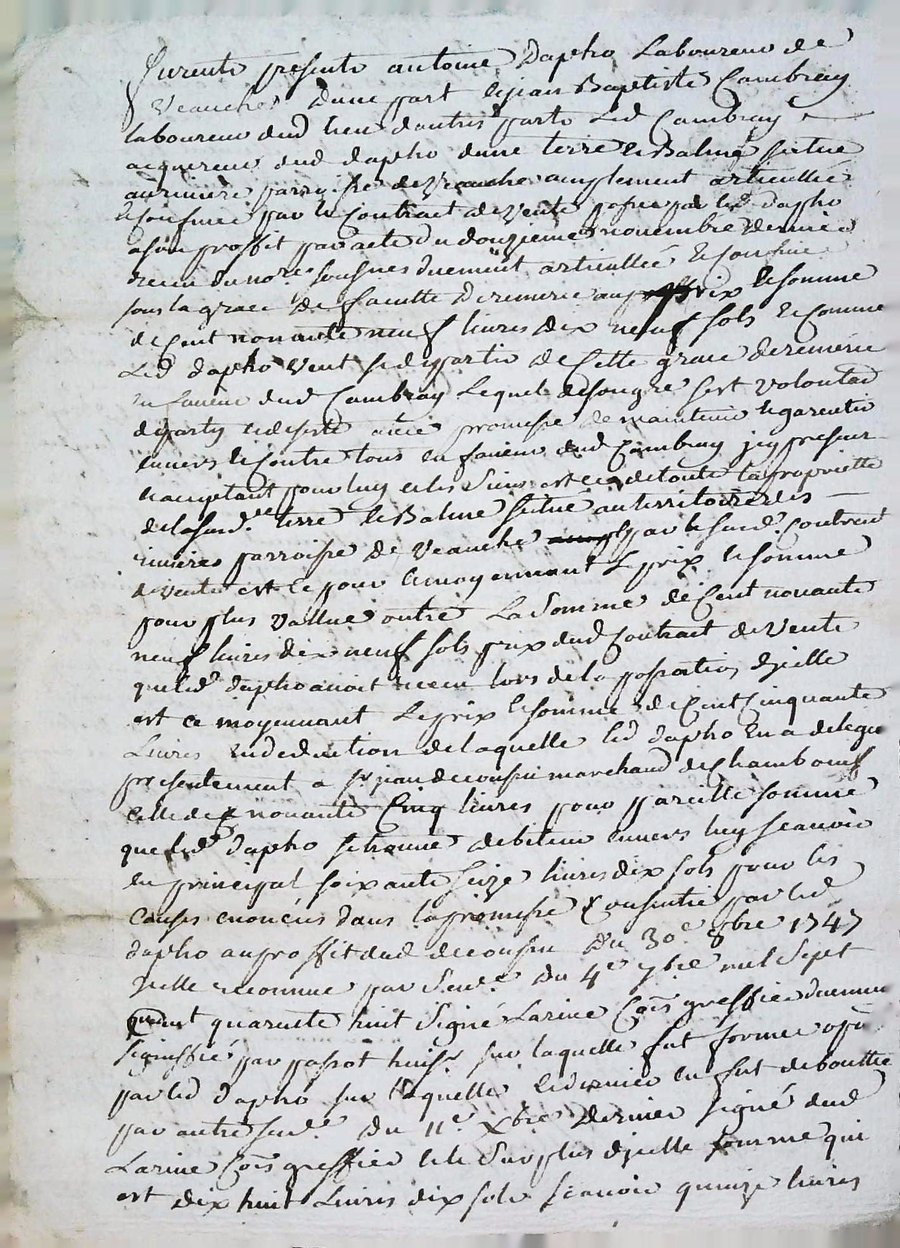 furents presents antoine Dapho Laboureur de
Veauche Dune part & jean Baptiste Cambray
laboureur dud lieu dautre part Led Cambray
acquereur dud dapho dune terre & Balme situé
parroisse de Veauche amplement articullée
& confinée par le Contract de Vente passé par led dapho
a son proffit par acte du douzieme novembre dernier
receu du nore. soussigné duement articullée & confinée
sous la grace de faculté deremerie au prix & somme
de Cent nonante neuf livres dix neuf sols & Comme
Led dapho veut se departir de Cette grace deremerie
en faveur dud Cambray Lequel de son gré sest volontad
departy & desisté avec promesse de maintenir & garentir
envers & Contre tous en faveur dud Cambray jcy present
& acceptant pour luy & les Siens est de toute la proprietté
de lasusd.e terre & Balme situé au territoire des
rivieres parroisse de Veauche par le susd. Contract
de vente est ce pour & moyennant Le prix & somme
pour plus Vallue outre La Somme de Cent nonante
neuf livres dix neuf sols prix dud Contract de Vente
queled dapho avoit receu lors de la passation djcelle
est ce moyennant Le prix & somme de Cent Cinquante
Livres en deduction de laquelle led dapho En a delegué
presentement a sr jean decousin marchand de Chambœuf
celle de nonante Cinq livres pour pareille somme
que led dapho se trouve debiteur envers luy scavoir
en principal soixante seize livres dix sols pour les
causes enoncées dans la promesse Consentie par led
dapho au proffit dud decousin Du 30e 8bre 1747
jcelle reconnue par Sen.e du 4e 7bre mil Sept
Cent quarante huit Signé Larine Cōis greffier duement
signiffié par passot huiss.r sur laquelle fut formé opōn
par led dapho sur laquelle lednier en fut deboutté
par autre sen.e du 11e Xbre Dernier signé dud
Larine Cōis greffier & le Surplus djcelle somme qui
est dix huit Livres dix sols scavoir quinze livres